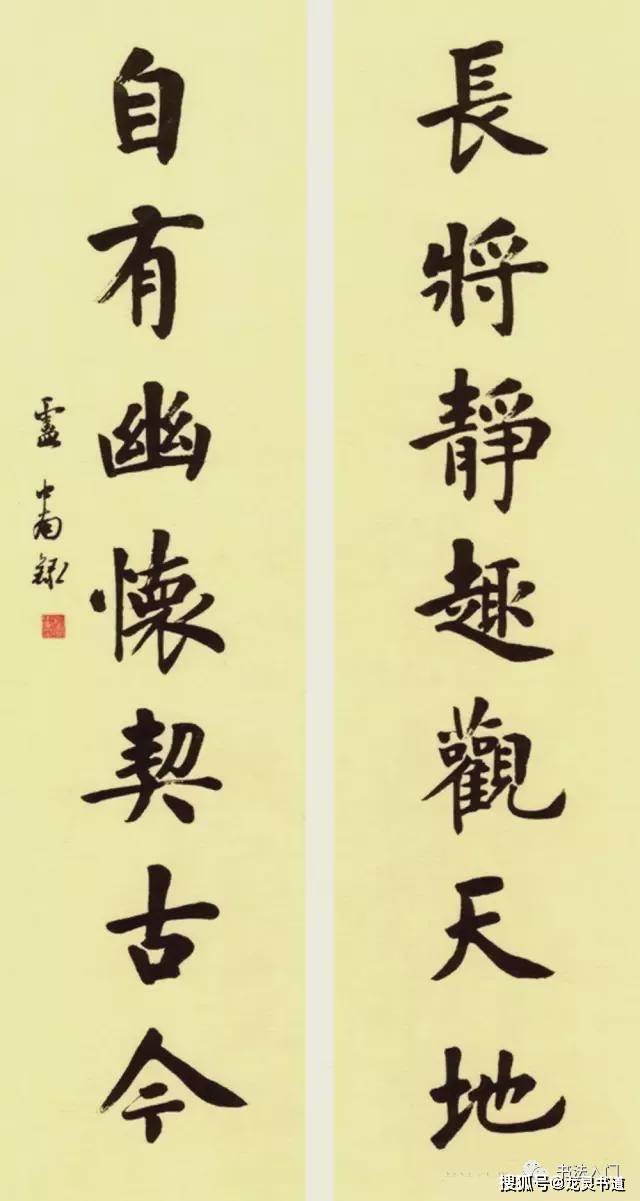 長將靜趣觀天地
自有幽懷契古今
盧中南錄
书法入门
搜狐号@龙灵书道